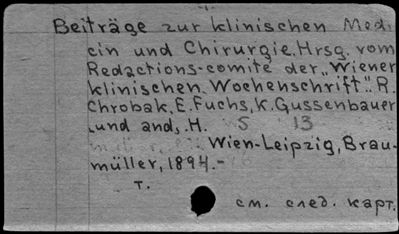 -1-
Beiträge zur klinischen Medi
cin und Chirurgie. Hrsg. vom
Redactions-comite der „Wiener
klinischen Wochenschrift". R.
Chrobak, E. Fuchs, K. Gussenbauer
und and. H. 5 13
Wien-Leipzig, Brau-
müller, 1894.-
т.
см. след. карт.